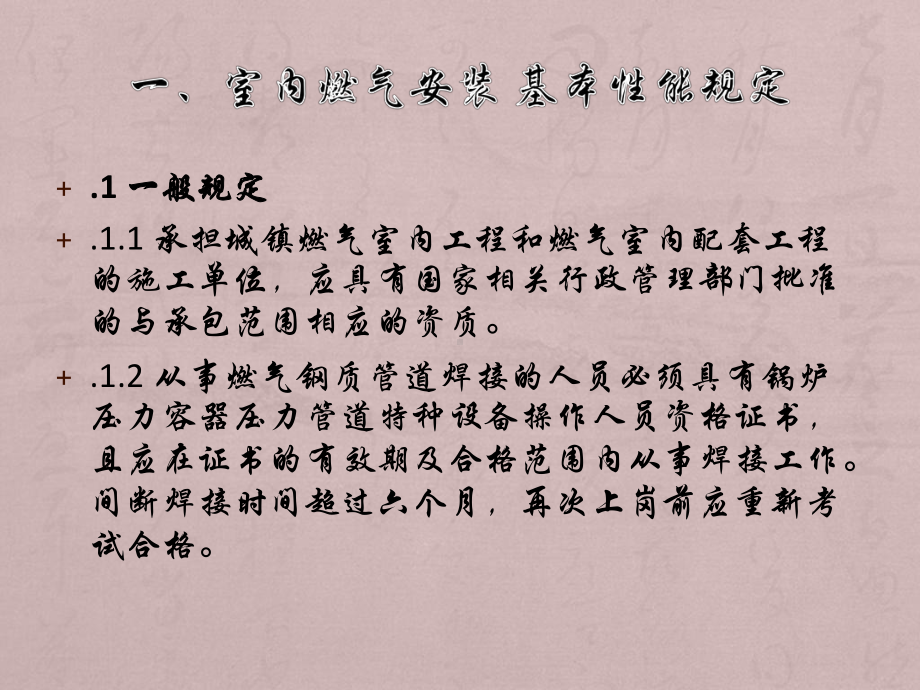 一、室内燃气安装 基本性能规定
+ .1 一般规定
+ .1.1 承担城镇燃气室内工程和燃气室内配套工程
的施工单位，应具有国家相关行政管理部门批准
的与承包范围相应的资质。
+ .1.2 从事燃气钢质管道焊接的人员必须具有锅炉
压力容器压力管道特种设备操作人员资格证书，
且应在证书的有效期及合格范围内从事焊接工作。
间断焊接时间超过六个月，再次上岗前应重新考
试合格。